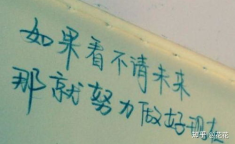 如果看不清未来
那就努力做好现在
知乎 @花花